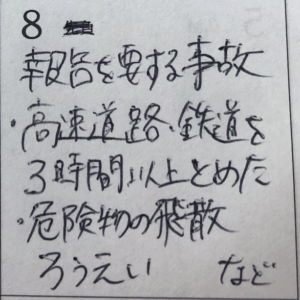 8
報告を要する事故
・高速道路、鉄道を
3時間以上とめた
・危険物の飛散
ろうえい など